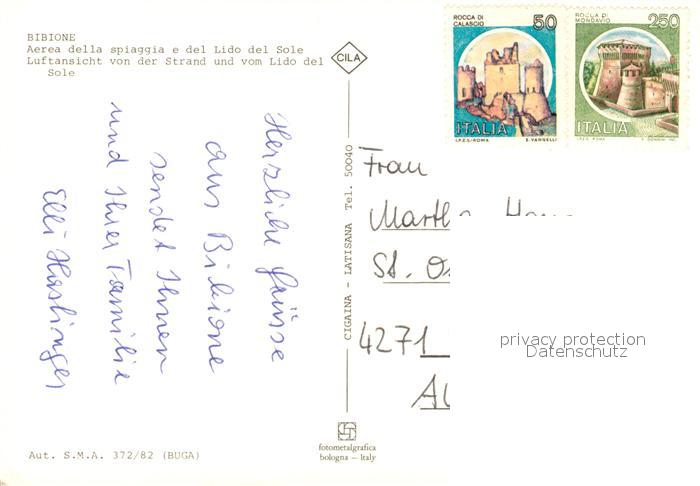 BIBIONE
Aerea della spiaggia e del Lido del Sole
Luftansicht von der Strand und vom Lido del
Sole
CILA
ROCCA DI
CALASCIO
50
ITALIA
I.P.Z.S. ROMA E. VANGELLI
ROCCA DI
MONDAVIO
250
ITALIA
Herzliche Grüsse
aus Bibione
sendet Ihnen
und Ihrer Familie
Elli Haslinger
CIGAINA - LATISANA Tel. 50040
Frau
St.
4271
privacy protection
Datenschutz
Aut. S.M.A. 372/82 (BUGA)
fotometalgrafica
bologna - italy